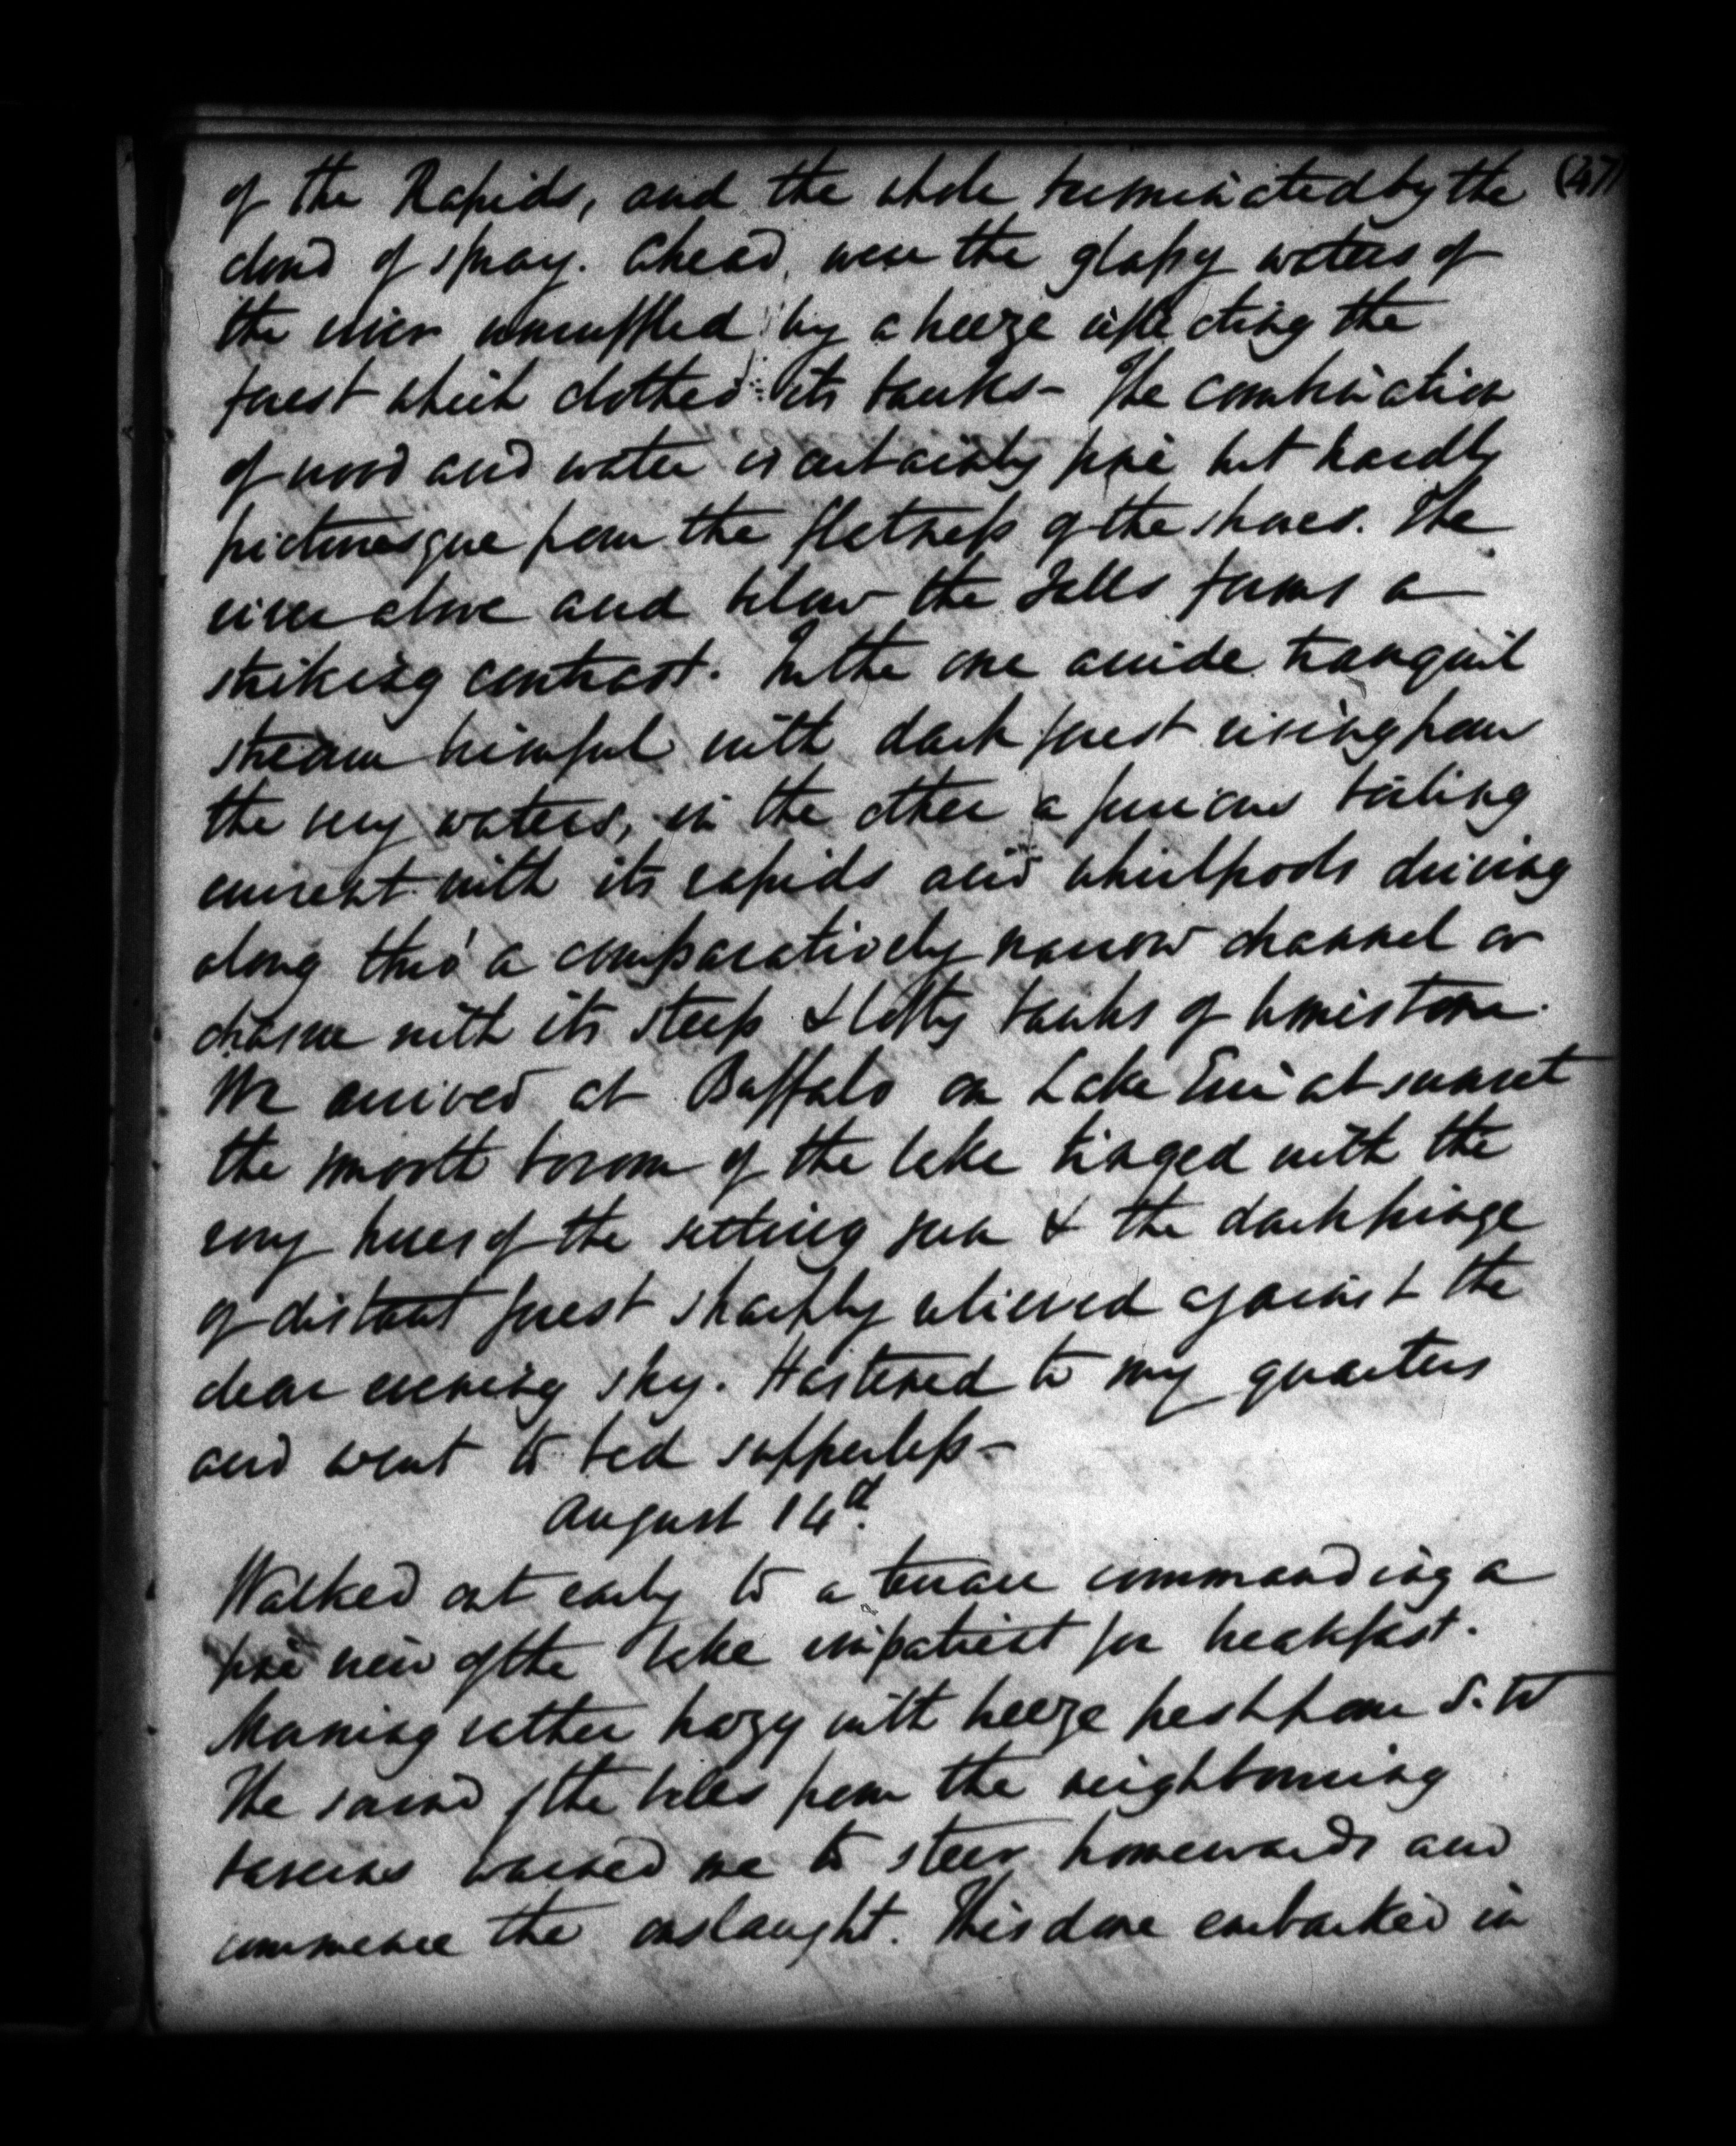 of the Rapids, and the whole terminated by the (47)
cloud of spray. Ahead, were the glassy waters of
the river unruffled by a breeze reflecting the
forest which clothed its banks - The combination
of wood and water is certainly fine but hardly
picturesque from the flatness of the shores. The
river above and below the Falls forms a
striking contrast. In the one a wide tranquil
stream brimful with dark forest rising from
the very waters, in the other a furious boiling
current with its rapids and whirlpools driving
along thro' a comparatively narrow channel or
chasm with its steep & lofty banks of limestone.
We arrived at Buffalo on Lake Erie at sunset
the smooth bosom of the lake tinged with the
rosy hues of the setting sun & the dark fringe
of distant forest sharply relieved against the
clear evening sky. Hastened to my quarters
and went to bed supperless -
August 14th.
Walked out early to a terrace commanding a
fine view of the lake impatient for breakfast.
Morning rather hazy with breeze fresh from S. W
The sound of the bells from the neighbouring
taverns warned me to steer homewards and
commence the onslaught. This done embarked in